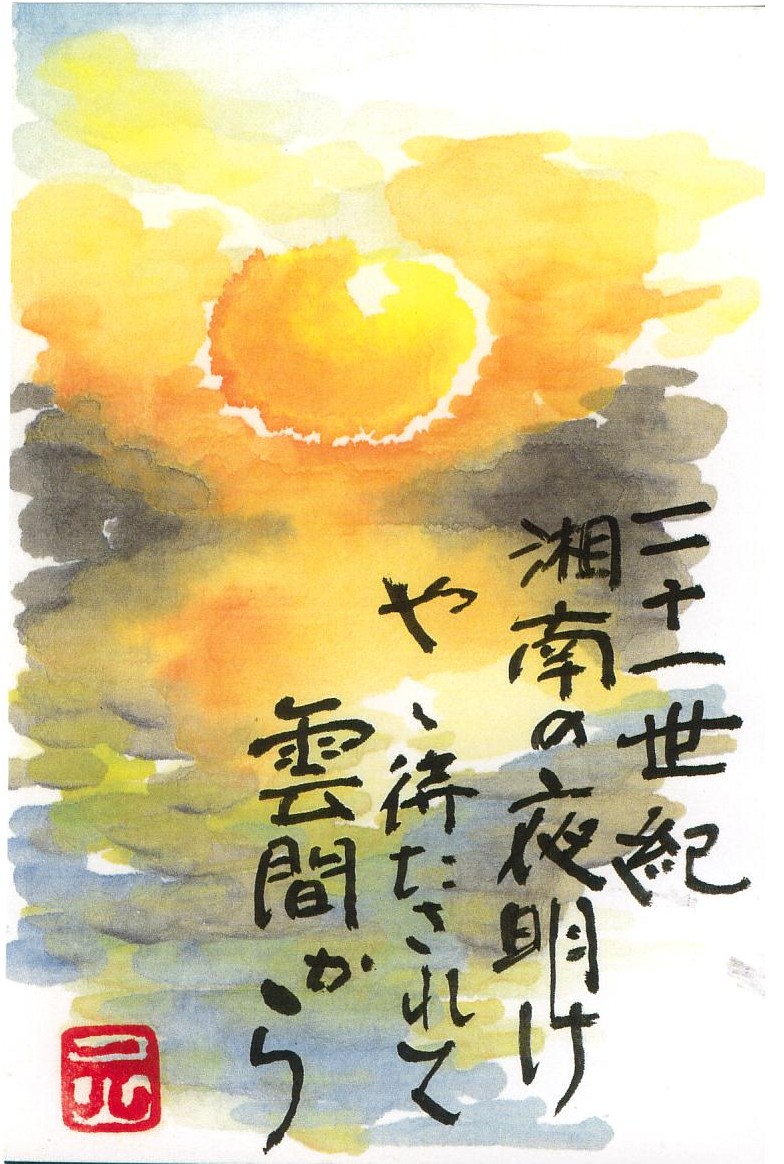 二十一世紀
湘南の夜明け
やゝ待たされて
雲間から
元